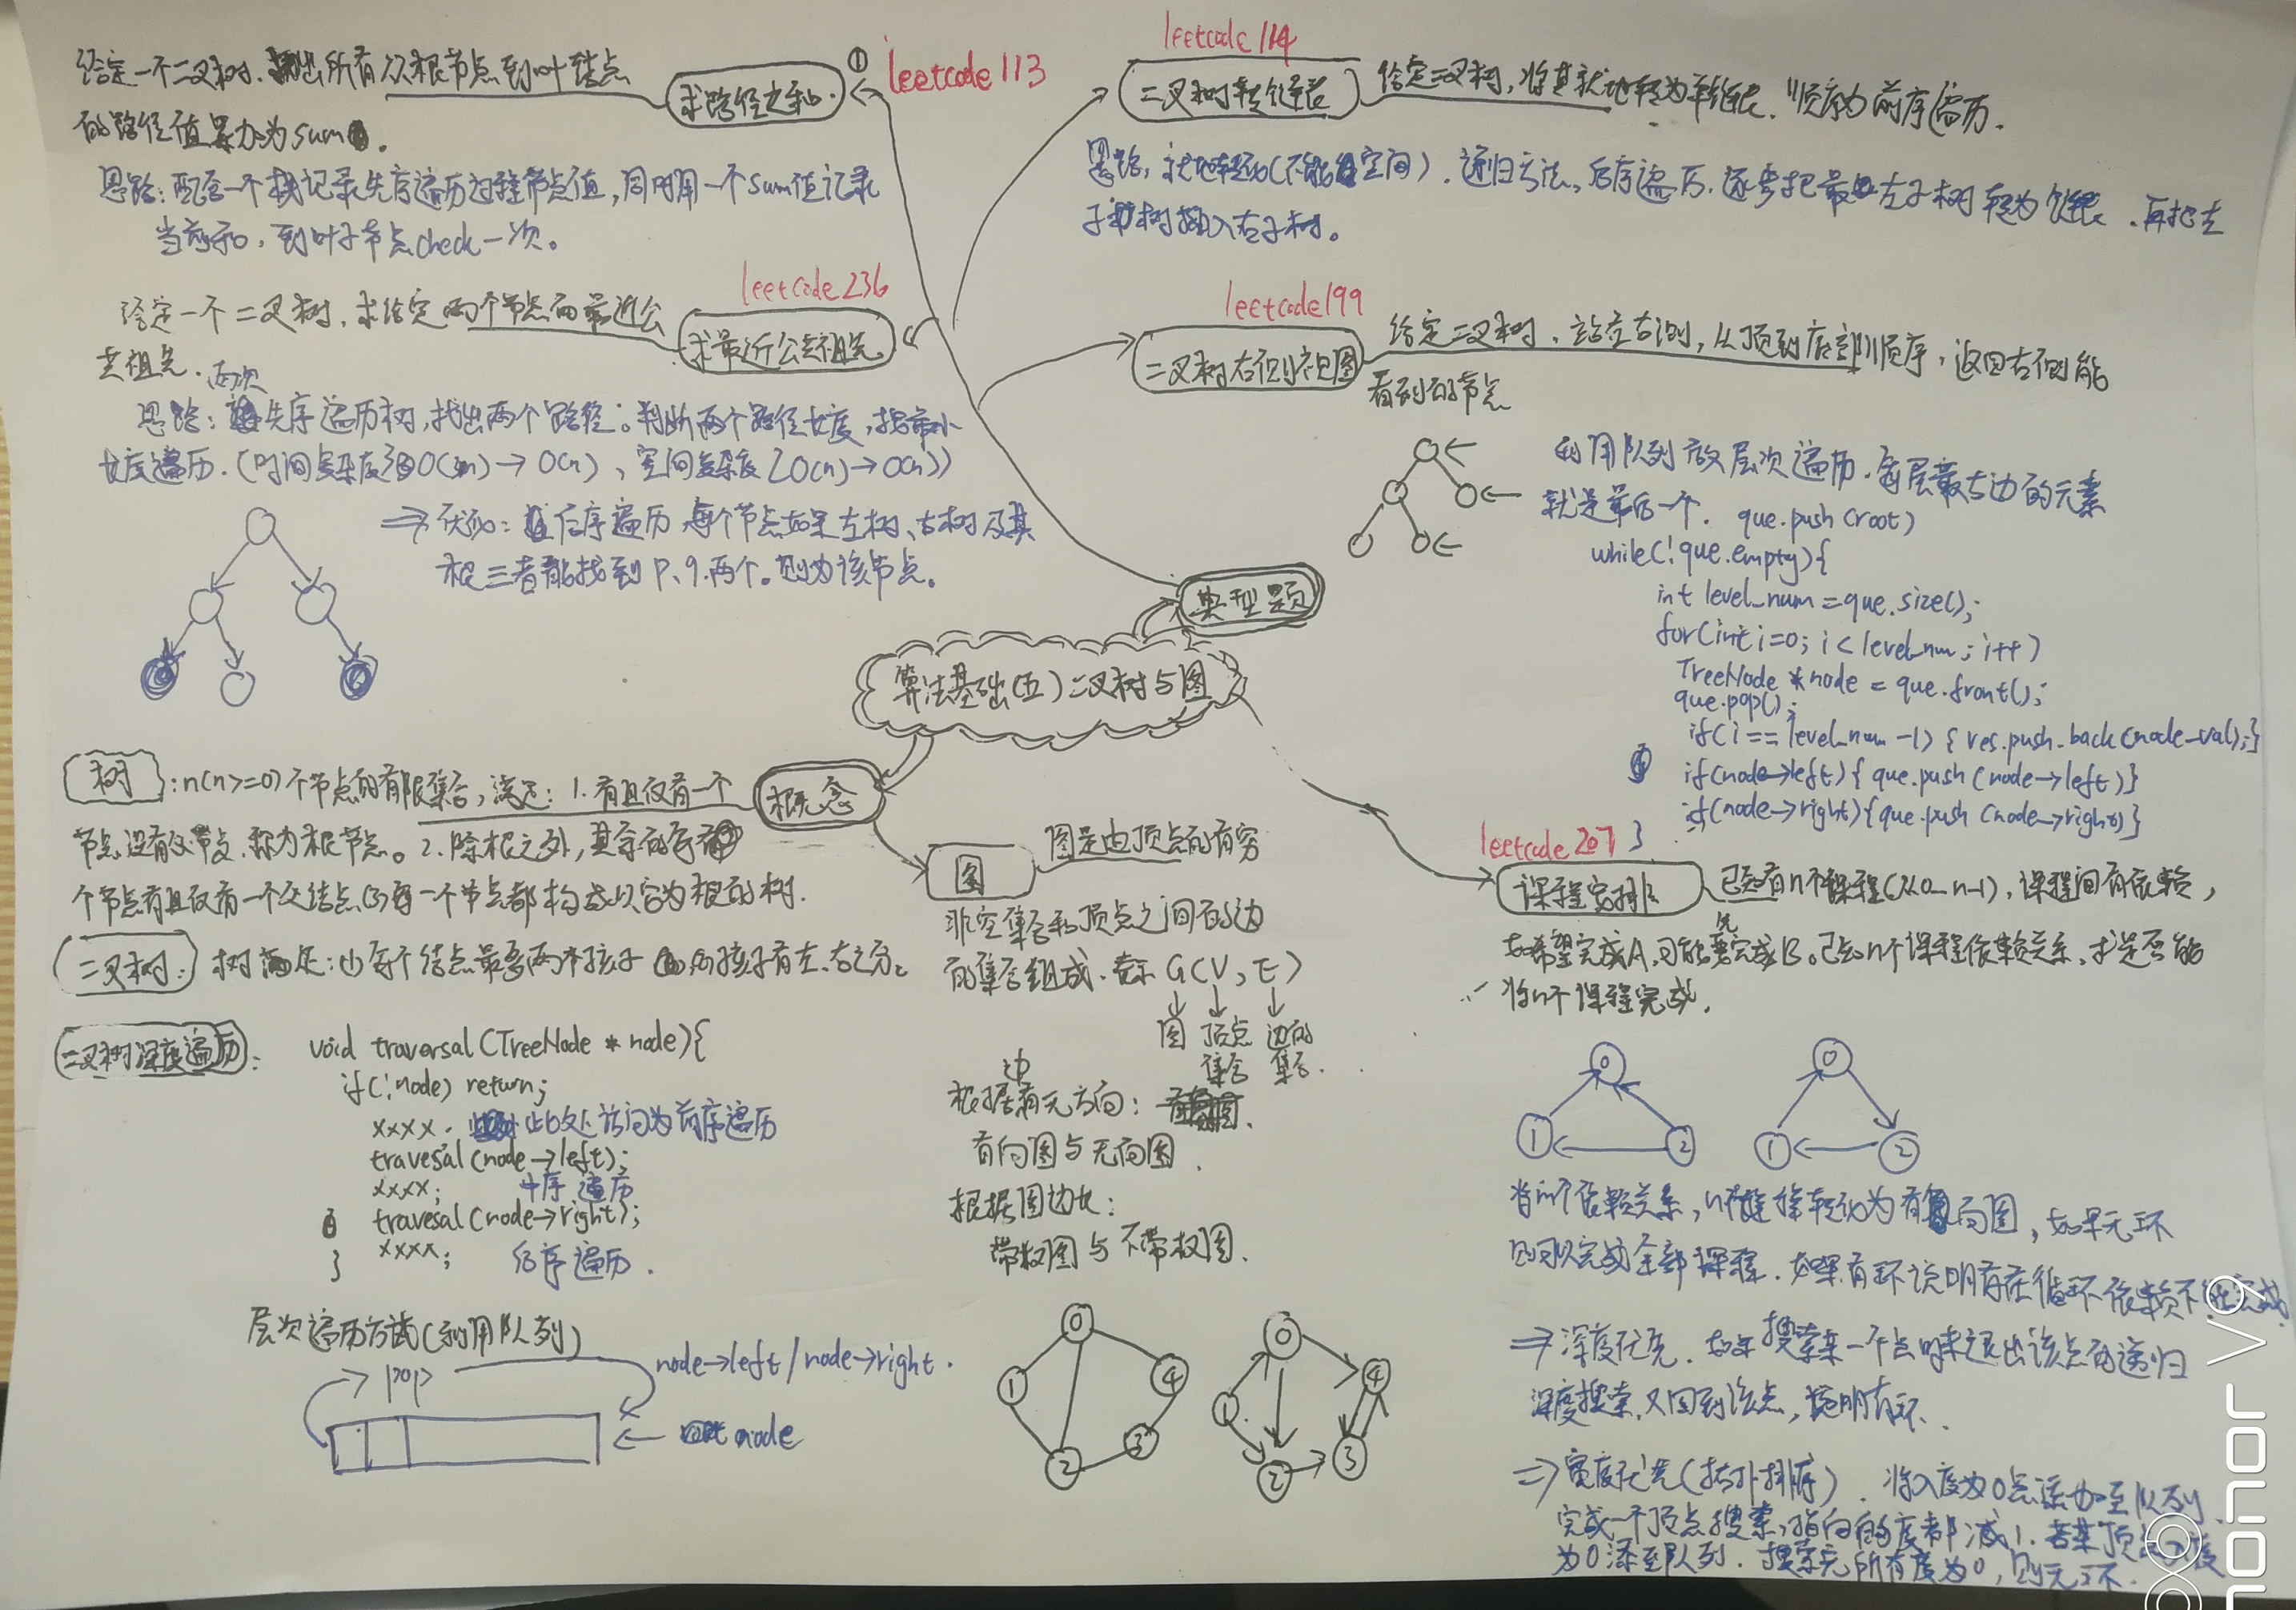 leetcode 113
①
求路径之和.
给定一个二叉树.找出所有从根节点到叶结点
的路径值累加为sum.
思路:配合一个栈记录先序遍历过程节点值,同时用一个sum值记录
当前和,到叶子节点check一次。
leetcode 236
求最近公共祖先
给定一个二叉树.求给定两个节点的最近公
共祖先.
两次
思路:先序遍历树,找出两个路径。判断两个路径长度,按最小
长度遍历.(时间复杂度 O(n)→O(n),空间复杂度2O(n)→O(n))
⇒优化:后序遍历 每个节点如果左树、右树及其
根三者能找到p、q两个。则为该节点。
leetcode 114
二叉树转链表
给定二叉树,将其就地转为单链表.顺序为前序遍历.
思路,就地转化(不能空间).递归方法,后序遍历.逐步把最左子树转为链表.再把左
子树插入右子树。
leetcode 199
二叉树右侧视图
给定二叉树.站在右侧,从顶到底部顺序,返回右侧能
看到的节点
利用队列放层次遍历.每层最右边的元素
就是最后一个. que.push(root)
while(!que.empty){
int level_num=que.size();
for(int i=0; i<level_num; i++)
TreeNode *node = que.front();
que.pop();
if(i==level_num-1){res.push_back(node->val);}
if(node→left){que.push(node→left)}
if(node→right){que.push(node→right)}
}
典型题
算法基础(五)二叉树与图
概念
树
:n(n>=0)个节点的有限集合,满足:1.有且仅有一个
节点没有父节点.称为根节点。2.除根之外,其余的每
个节点有且仅有一个父结点(3)每一个节点都构成以它为根的树.
二叉树.
树满足:(1)每个结点最多两个孩子 (2)孩子有左、右之分。
二叉树深度遍历:
void traversal(TreeNode * node){
if(!node) return;
xxxx. 此处访问为前序遍历
travesal(node→left);
xxxx; 中序遍历
travesal(node→right);
xxxx; 后序遍历.
}
层次遍历方式(利用队列)
pop
node→left/node→right.
node
图
图是由顶点的有穷
非空集合和顶点之间的边
的集合组成.表示 G(V, E)
图 顶点 边的
集合 集合.
边
根据有无方向:
有向图与无向图.
根据图边长:
带权图与不带权图.
0
1
4
2
3
0
1
4
2
3
leetcode 207
课程安排
已知有n个课程(从0~n-1),课程间有依赖,
先
如希望完成A,可能要完成B。已知n个课程依赖关系,求是否能
将n个课程完成.
0
1
2
0
1
2
将n个依赖关系,转化为有向图,如果无环
则可以完成全部课程.如果有环说明存在循环依赖不能完成.
⇒深度优先.如果搜索某一个点时未退出该点的递归
深度搜索,又回到该点,说明有环.
⇒宽度优先(拓扑排序).将入度为0点添加至队列.
完成一个顶点搜索,指向的度都减1.若某顶点入度
为0添至队列.搜索完所有度为0,则无环.
honor V9